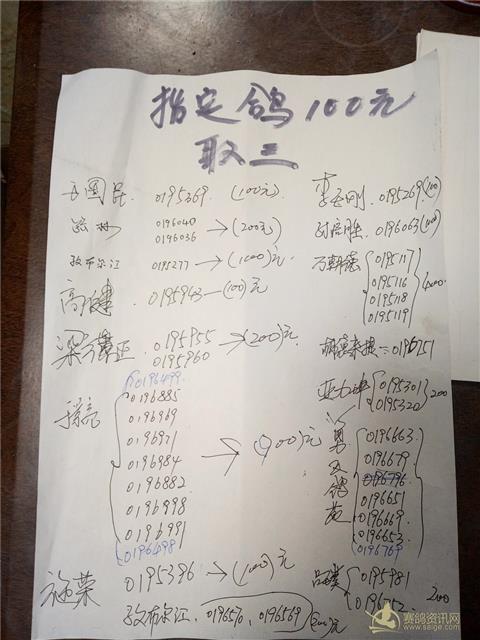 指定鸽100元
取三
王国民. 0195369. (100元)
0196040
0196036 →(200元)
孜布尔江 0195277 →(100元)
高健 0195943—(100)元
梁 正. 0195955
0195960 →(200)元
0196499
0196885
0196969
0196971
0196984
0196882
0196998
0196991
0196498
→(900)元
施荣 0195396 →(100)元
孜布尔江. 019657 , 0196569 200元
李 刚. 0195269(100)
胜. 0196063(100)
万朝 0195117
0195116
0195118
0195119
400元
0196251
亚力坤 0195301
0195320 200
勇久鸽苑
0196663
0196679
0196796
0196651
0196669
0196653
0196769
0195981
0196752 200
赛鸽资讯网
www.saige.com